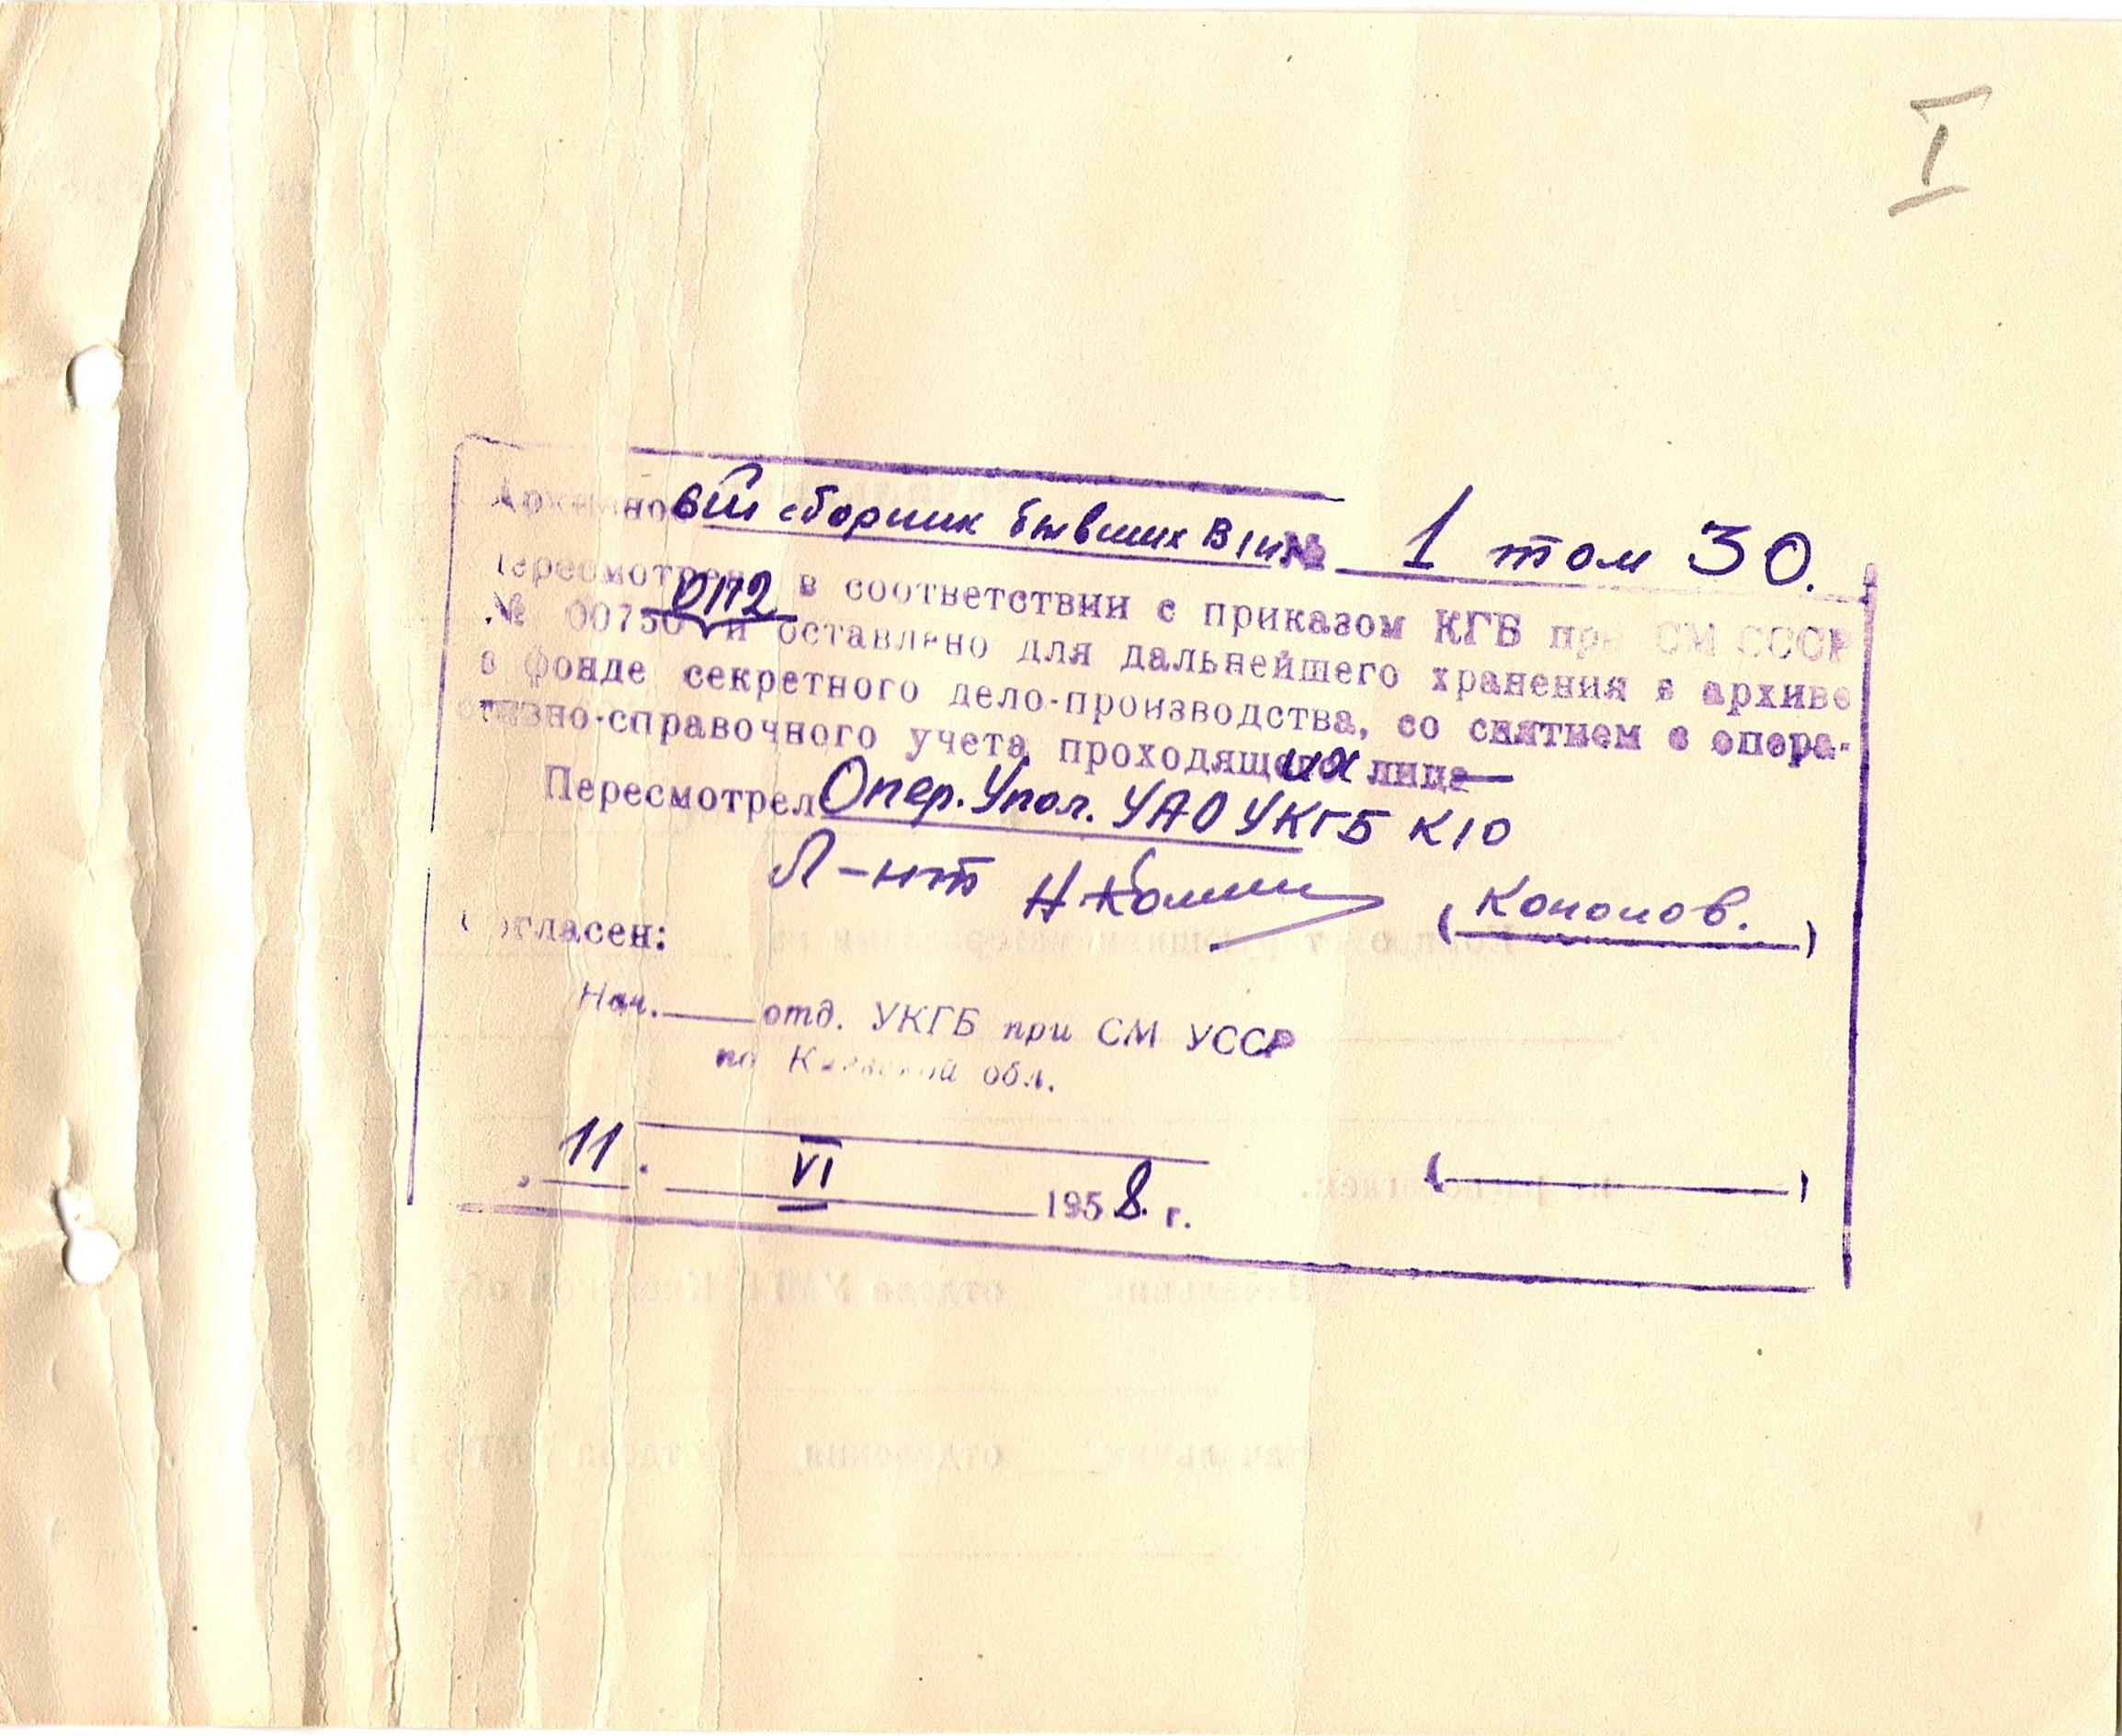 I
Архивновый сборник бывших В/пл № 1 том 30.
Пересмотрен в соответствии с приказом КГБ при СМ СССР
0112
№ 00750 и оставлено для дальнейшего хранения в архиве
в фонде секретного дело-производства, со снятием с опера-
тивно-справочного учета проходящих лиц
Пересмотрел Опер. Упол. УАО УКГБ КО
Л-нт (Кононов.)
Согласен:
Нач. ____ отд. УКГБ при СМ УССР
по Киевской обл.
11. VI 1958. г. ( )